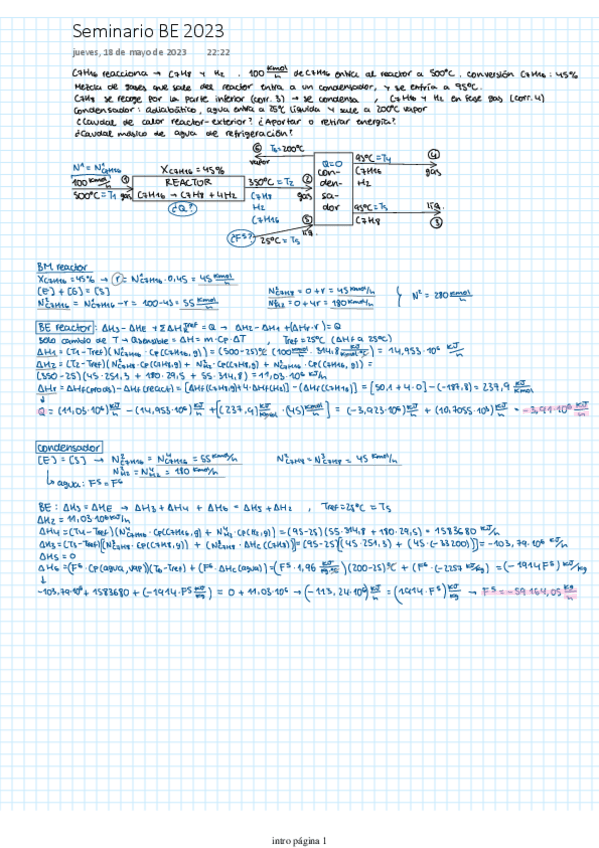 Seminario BE 2023
jueves, 18 de mayo de 2023 22:22
C7H16 reacciona → C7H8 y H2 . 100 Kmol/h de C7H16 entra al reactor a 500°C. conversión C7H16: 45%
Mezcla de gases que sale del reactor entra a un condensador, y se enfría a 95°C.
C7H8 se recoge por la parte inferior (corr. 3) → se condensa , C7H16 y H2 en fase gas (corr. 4)
Condensador: adiabático, agua entra a 25°C líquida y sale a 200°C vapor
¿Caudal de calor reactor-exterior? ¿Aportar o retirar energía?
¿Caudal másico de agua de refrigeración?
⑥ T6=200°C
vapor
N¹ = N¹C7H16
100 Kmol/h ①
500°C = T1 gas
XC7H16 = 45%
REACTOR
C7H16 → C7H8 + 4H2
¿Q?
350°C = T2 ②
C7H8 gas
H2
C7H16
Q=0
con-
den-
sa-
dor
95°C = T4 ④
C7H16 gas
H2
95°C = T3 líq.
C7H8 ③
⑤
¿F5? 25°C = T5 líq.
BM reactor
XC7H16 = 45% → r = N¹C7H16 · 0,45 = 45 Kmol/h
[E] + [G] = [S]
N²C7H16 = N¹C7H16 - r = 100-45 = 55 Kmol/h
N²C7H8 = 0 + r = 45 Kmol/h
N²H2 = 0 + 4r = 180 Kmol/h
N² = 280 Kmol/h
BE reactor : ΔHS - ΔHE + ΣΔHr Tref = Q → ΔH2 - ΔH1 + (ΔHr · r) = Q
solo cambio de T → Qsensible = ΔH = m · Cp · ΔT , Tref = 25°C (ΔHf a 25°C)
ΔH1 = (T1 - Tref)(N¹C7H16 · Cp(C7H16,g)) = (500-25)°C (100 Kmol/h · 314,8 KJ/Kmol°C) = 14,953·10⁶ KJ/h
ΔH2 = (T2 - Tref)(N²C7H8 · Cp(C7H8,g) + N²H2 · Cp(H2,g) + N²C7H16 · Cp(C7H16,g)) =
(350-25)(45·251,3 + 180·29,5 + 55·314,8) = 11,03·10⁶ KJ/h
ΔHr = ΔHf(prods) - ΔHf(react) = [ΔHf(C7H8,g) + 4·ΔHf(H2)] - (ΔHf(C7H16)) = [50,1 + 4·0] - (-187,8) = 237,9 KJ/Kmol
↓
Q = (11,03·10⁶) KJ/h - (14,953·10⁶) KJ/h + [(237,9) KJ/Kmol · (45) Kmol/h] = (-3,923·10⁶) KJ/h + (10,7055·10³) KJ/h = -3,91·10⁶ KJ/h
Condensador
[E] = [S] → N²C7H16 = N⁴C7H16 = 55 Kmol/h
N²H2 = N⁴H2 = 180 Kmol/h
N²C7H8 = N³C7H8 = 45 Kmol/h
↳ agua: F5 = F6
BE: ΔHS = ΔHE → ΔH3 + ΔH4 + ΔH6 = ΔH5 + ΔH2 , Tref = 25°C = T5
ΔH2 = 11,03·10⁶ KJ/h
ΔH4 = (T4 - Tref)(N⁴C7H16 · Cp(C7H16,g) + N⁴H2 · Cp(H2,g)) = (95-25)(55·314,8 + 180·29,5) = 1583680 KJ/h
ΔH3 = (T3 - Tref)[(N³C7H8 · Cp(C7H8,g)) + (N³C7H8 · ΔHc(C7H8))] = (95-25)[(45·251,3) + (45·(-33200))] = -103,79·10⁶ KJ/h
ΔH5 = 0
ΔH6 = (F6 · Cp(agua,vap))(T6 - Tref) + (F6 · ΔHc(agua)) = (F5 · 1,96 KJ/Kg°C)(200-25)°C + (F6 · (-2257 KJ/Kg)) = (-1914F5) KJ/Kg
↓
-103,79·10⁶ + 1583680 + (-1914·F5 KJ/Kg) = 0 + 11,03·10⁶ → (-113,24·10⁶) KJ/h = (1914·F5) KJ/Kg → F5 = -59.164,05 Kg/h
intro página 1